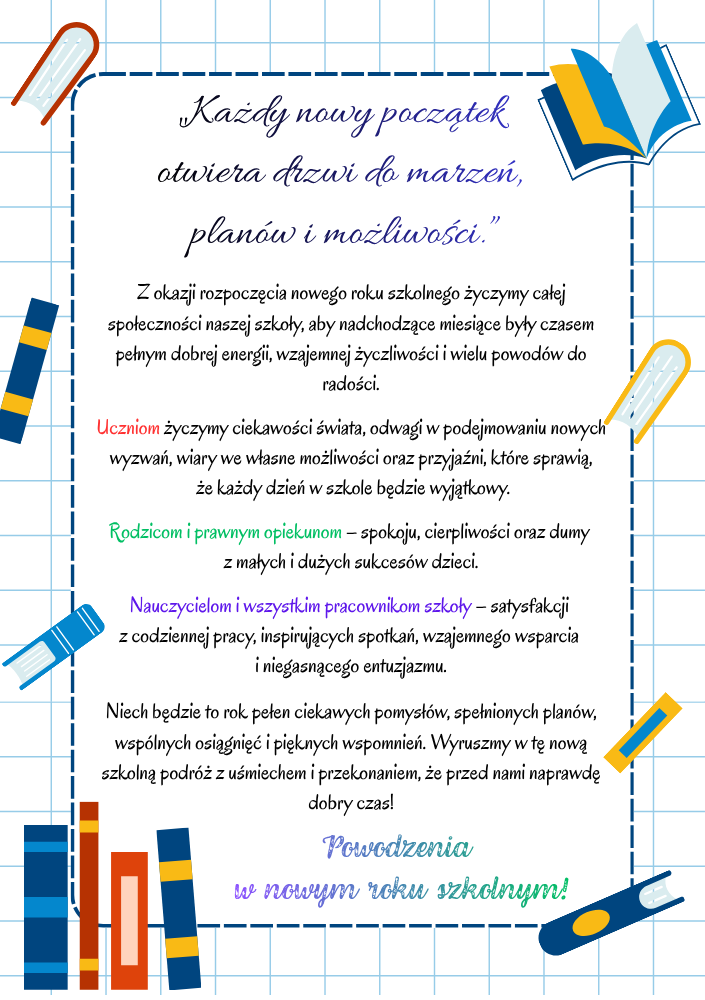 „Każdy nowy początek
otwiera drzwi do marzeń,
planów i możliwości.”
Z okazji rozpoczęcia nowego roku szkolnego życzymy całej
społeczności naszej szkoły, aby nadchodzące miesiące były czasem
pełnym dobrej energii, wzajemnej życzliwości i wielu powodów do
radości.
Uczniom życzymy ciekawości świata, odwagi w podejmowaniu nowych
wyzwań, wiary we własne możliwości oraz przyjaźni, które sprawią,
że każdy dzień w szkole będzie wyjątkowy.
Rodzicom i prawnym opiekunom – spokoju, cierpliwości oraz dumy
z małych i dużych sukcesów dzieci.
Nauczycielom i wszystkim pracownikom szkoły – satysfakcji
z codziennej pracy, inspirujących spotkań, wzajemnego wsparcia
i niegasnącego entuzjazmu.
Niech będzie to rok pełen ciekawych pomysłów, spełnionych planów,
wspólnych osiągnięć i pięknych wspomnień. Wyruszmy w tę nową
szkolną podróż z uśmiechem i przekonaniem, że przed nami naprawdę
dobry czas!
Powodzenia
w nowym roku szkolnym!